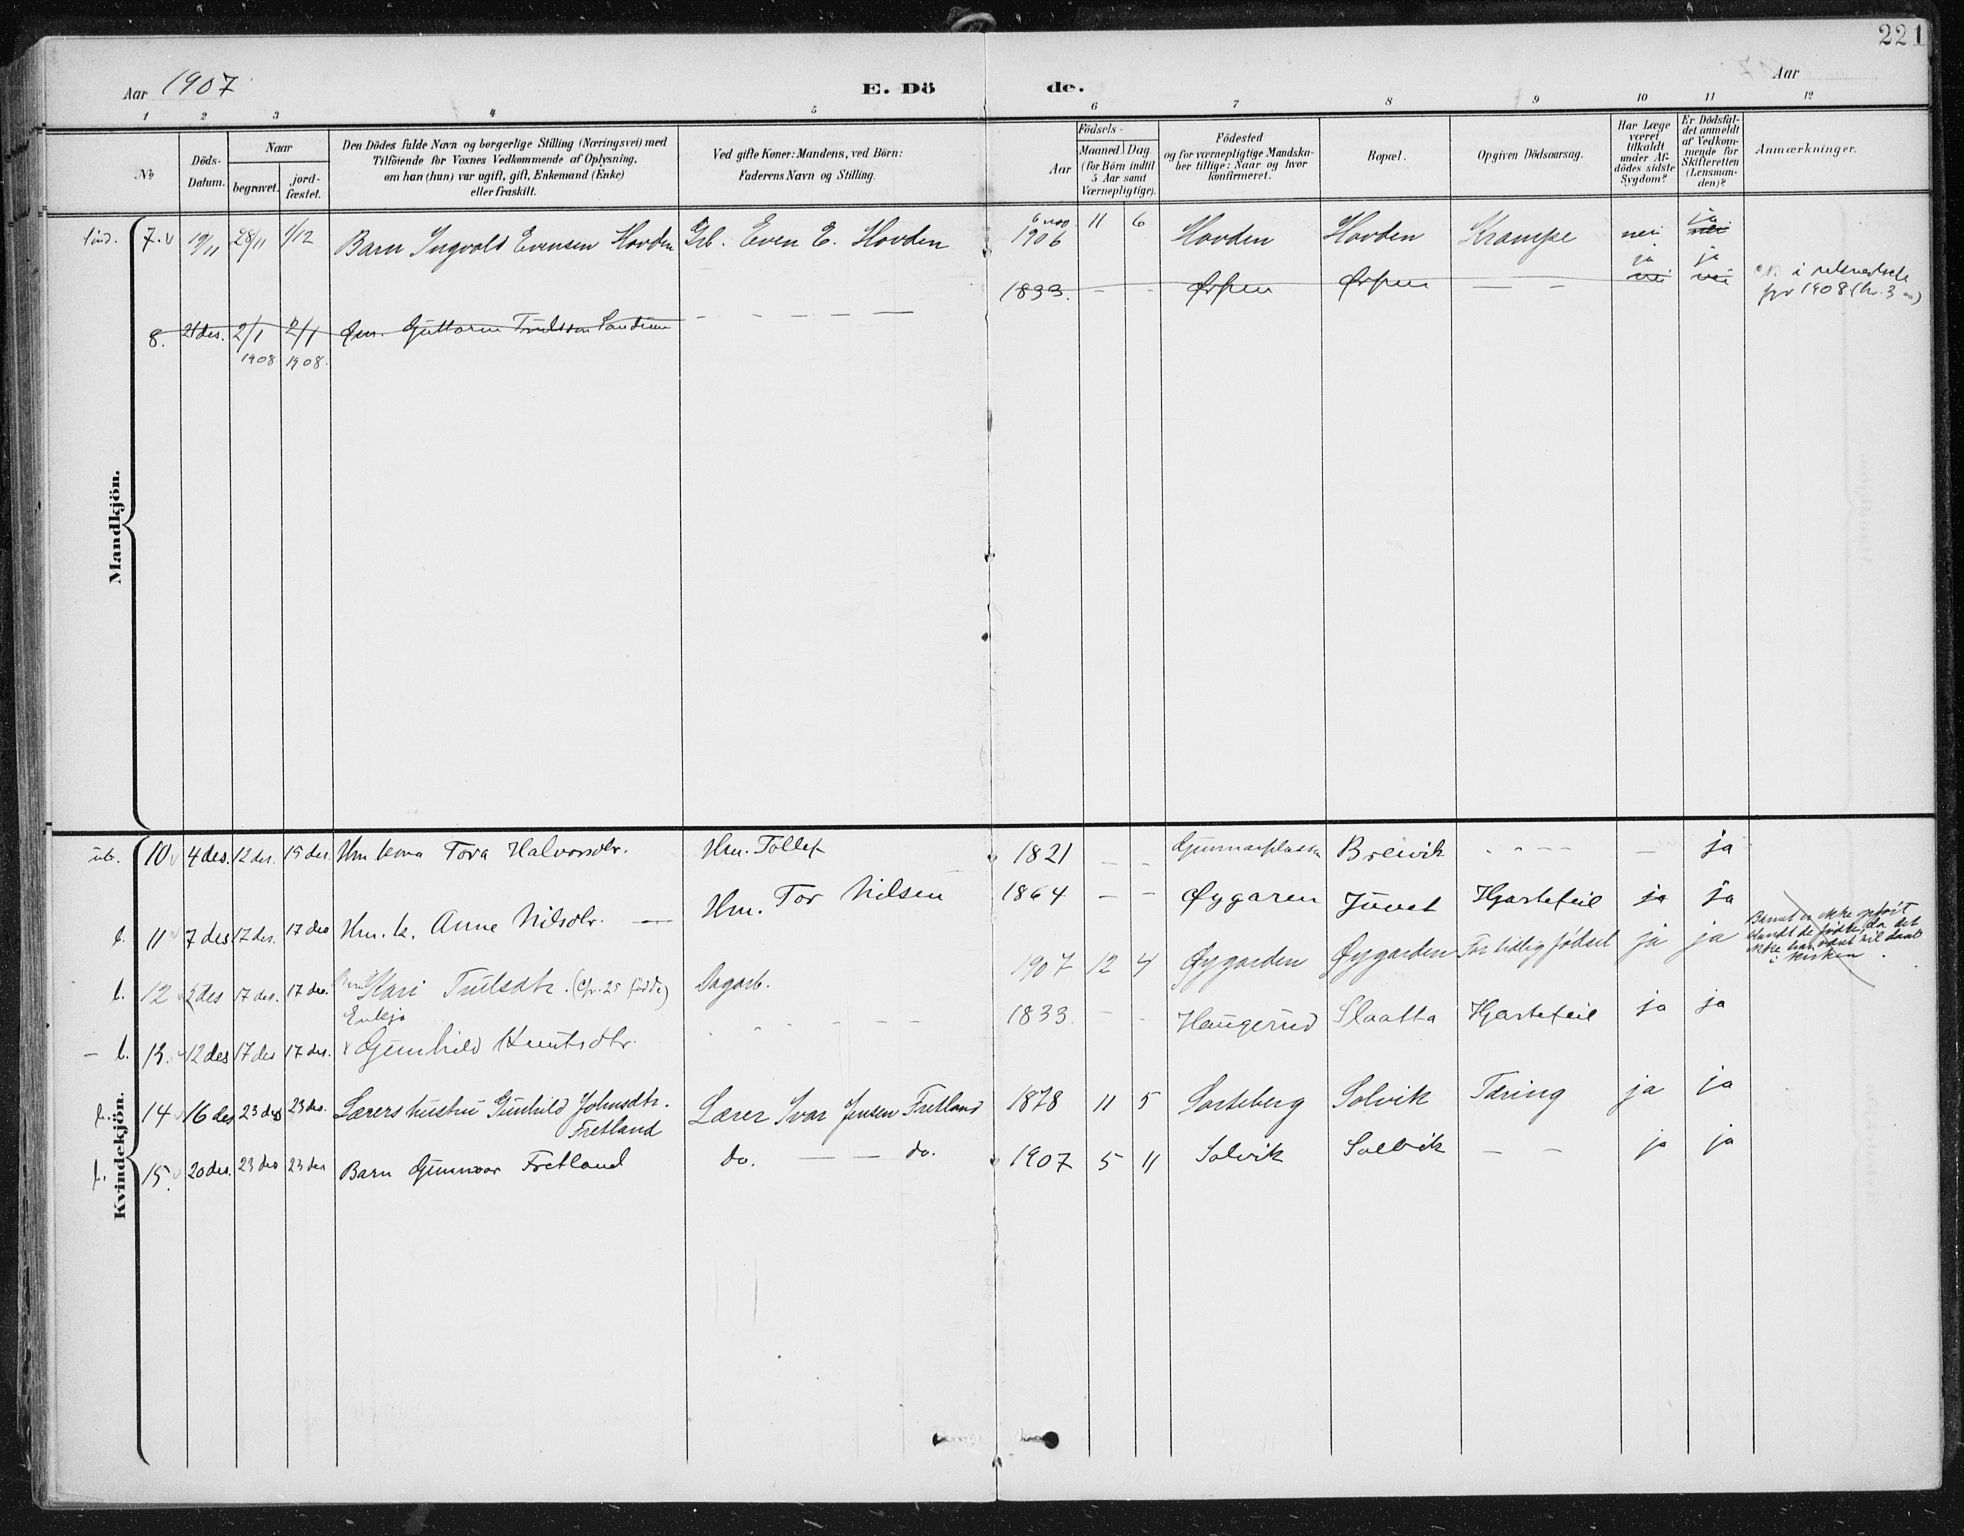 221
Aar 1907 E. Döde. Aar
1 2 3 4 5 6 7 8 9 10 11 12
No
Döds-Datum.
Naar
begravet. jord-fæstet.
Den Dödes fulde Navn og borgerlige Stilling (Næringsvei) med
Tilföiende for Voxnes Vedkommende af Oplysning,
om han (hun) var ugift, gift, Enkemand (Enke)
eller fraskilt.
Ved gifte Koner: Mandens, ved Börn:
Faderens Navn og Stilling.
Födsels-
Aar
Maaned Dag
(for Börn indtil
5 Aar samt
Værnepligtige).
Födested
og for værnepligtige Mandska-
ber tillige: Naar og hvor
konfirmeret.
Bopæl.
Opgiven Dödsaarsag.
Har Læge
været
tilkaldt
under Af-
dödes sidste
Sygdom?
Er Dödsfal-
det anmeldt
af Vedkom-
mende for
Skifteretten
(Lensman-
den)?
Anmærkninger.
Mandkjön.
7. 19/11 28/11 1/12 Barn Ingvald Evensen Hovden Grb. Even E. Hovden 1906 11 6 Hovden Hovden Krampe nei ja nei
8. 21 des. 2/1 1908 2/1 1908. Guttorm Sandum - - - 1833. - - - - ja nei ja nei
i
for 1908 (nr. 3)
Kvindekjön.
10 4 des. 12 des. 15 des. Hm. kona Tora Halvorsdtr. Hm. Tollef 1821 - - Gunnarsplassen Breivik - - - - - ja
l. 11 7 des 17 des. 17 des Hm. k. Anne Nilsdtr. — Hm. Tor Nilsen 1864 - - Øygaren Juvet Hjartefeil ja ja
l. 12 2 des 17 des. 17 des. Barn Kari Trulsdtr. (cfr. 25 fødde) Dagarb. 1907 12 4 Øygarden Øygarden For tidlig fødsel ja ja
Barnet er ikke opført
blandt de fødte, da det
ikke har været til daab
i kirken.
- l. 13. 12 des 17 des 17 des. Enkja Gunhild Knutsdtr. - - - 1833. - - Haugerud Slaatta Hjartefeil ja ja
l. 14 16 des 23 des 23 des. Lærers hustru Gunhild Johnsdtr. Fretland Lærer Ivar Jensen Fretland 1878 11 5 Sorteberg Solvik Tæring ja ja
l. 15. 20 des. 23 des 23 des Barn Gunnvor Fretland do. — — do. 1907 5 11 Solvik Solvik - - ja ja